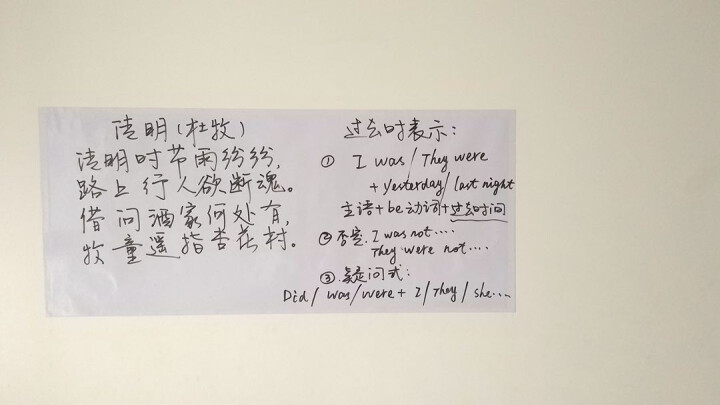 清明(杜牧)
清明时节雨纷纷,
路上行人欲断魂。
借问酒家何处有,
牧童遥指杏花村。
过去时表示:
① I was / They were
+ yesterday / last night
主语+be动词+过去时间
② 否定. I was not ....
They were not ....
③ 疑问式:
Did / was / were + I / They / she ...